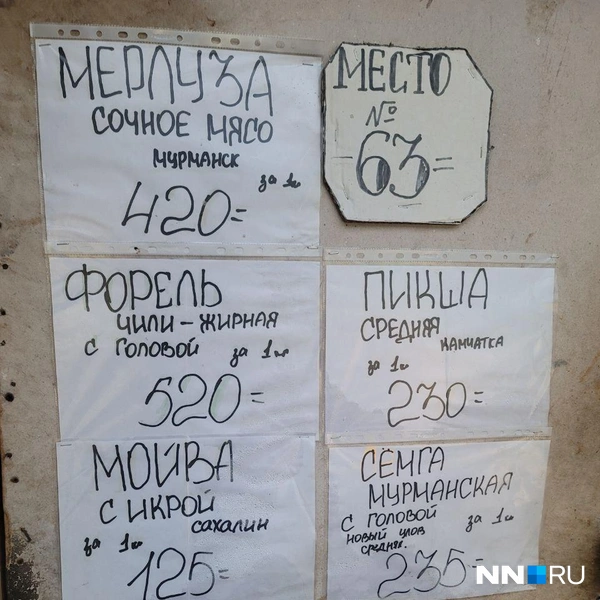 МЕРЛУЗА
СОЧНОЕ МЯСО
МУРМАНСК
за 1кг
420=
МЕСТО
№
63=
ФОРЕЛЬ
ЧИЛИ-ЖИРНАЯ
С ГОЛОВОЙ за 1кг
520=
ПИКША
СРЕДНЯЯ
КАМЧАТКА
за 1кг
230=
МОЙВА
С ИКРОЙ
САХАЛИН
за 1кг
125=
СЁМГА
МУРМАНСКАЯ
С ГОЛОВОЙ за 1кг
НОВЫЙ УЛОВ
СРЕДНЯЯ.
235=
NN RU